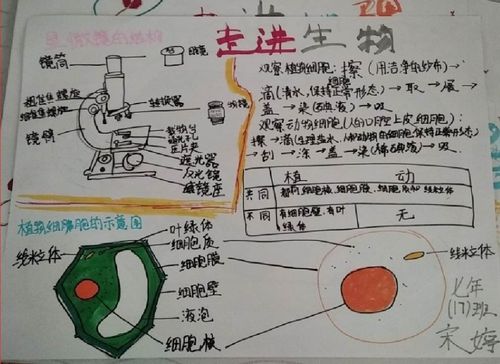 显微镜的结构
走进生物
镜筒
目镜
粗准焦螺旋
细准焦螺旋
转换器
物镜
镜臂
载物台
通光孔
压片夹
遮光器
反光镜
镜座
观察植物细胞：擦（用洁净纱布）→
滴（清水，保持正常形态）→取→展→
盖→染（碘液）→吸
观察动物细胞（人的口腔上皮细胞）：
擦→滴（生理盐水，保持正常形态）
→刮→涂→盖→染（稀碘液）→吸
植 动
共同 都有细胞核、细胞膜、细胞质和线粒体
不同 有细胞壁，有叶绿体 无
植物细胞的示意图
叶绿体
线粒体
细胞质
细胞膜
细胞壁
液泡
细胞核
线粒体
七年
(17)班
宋婷